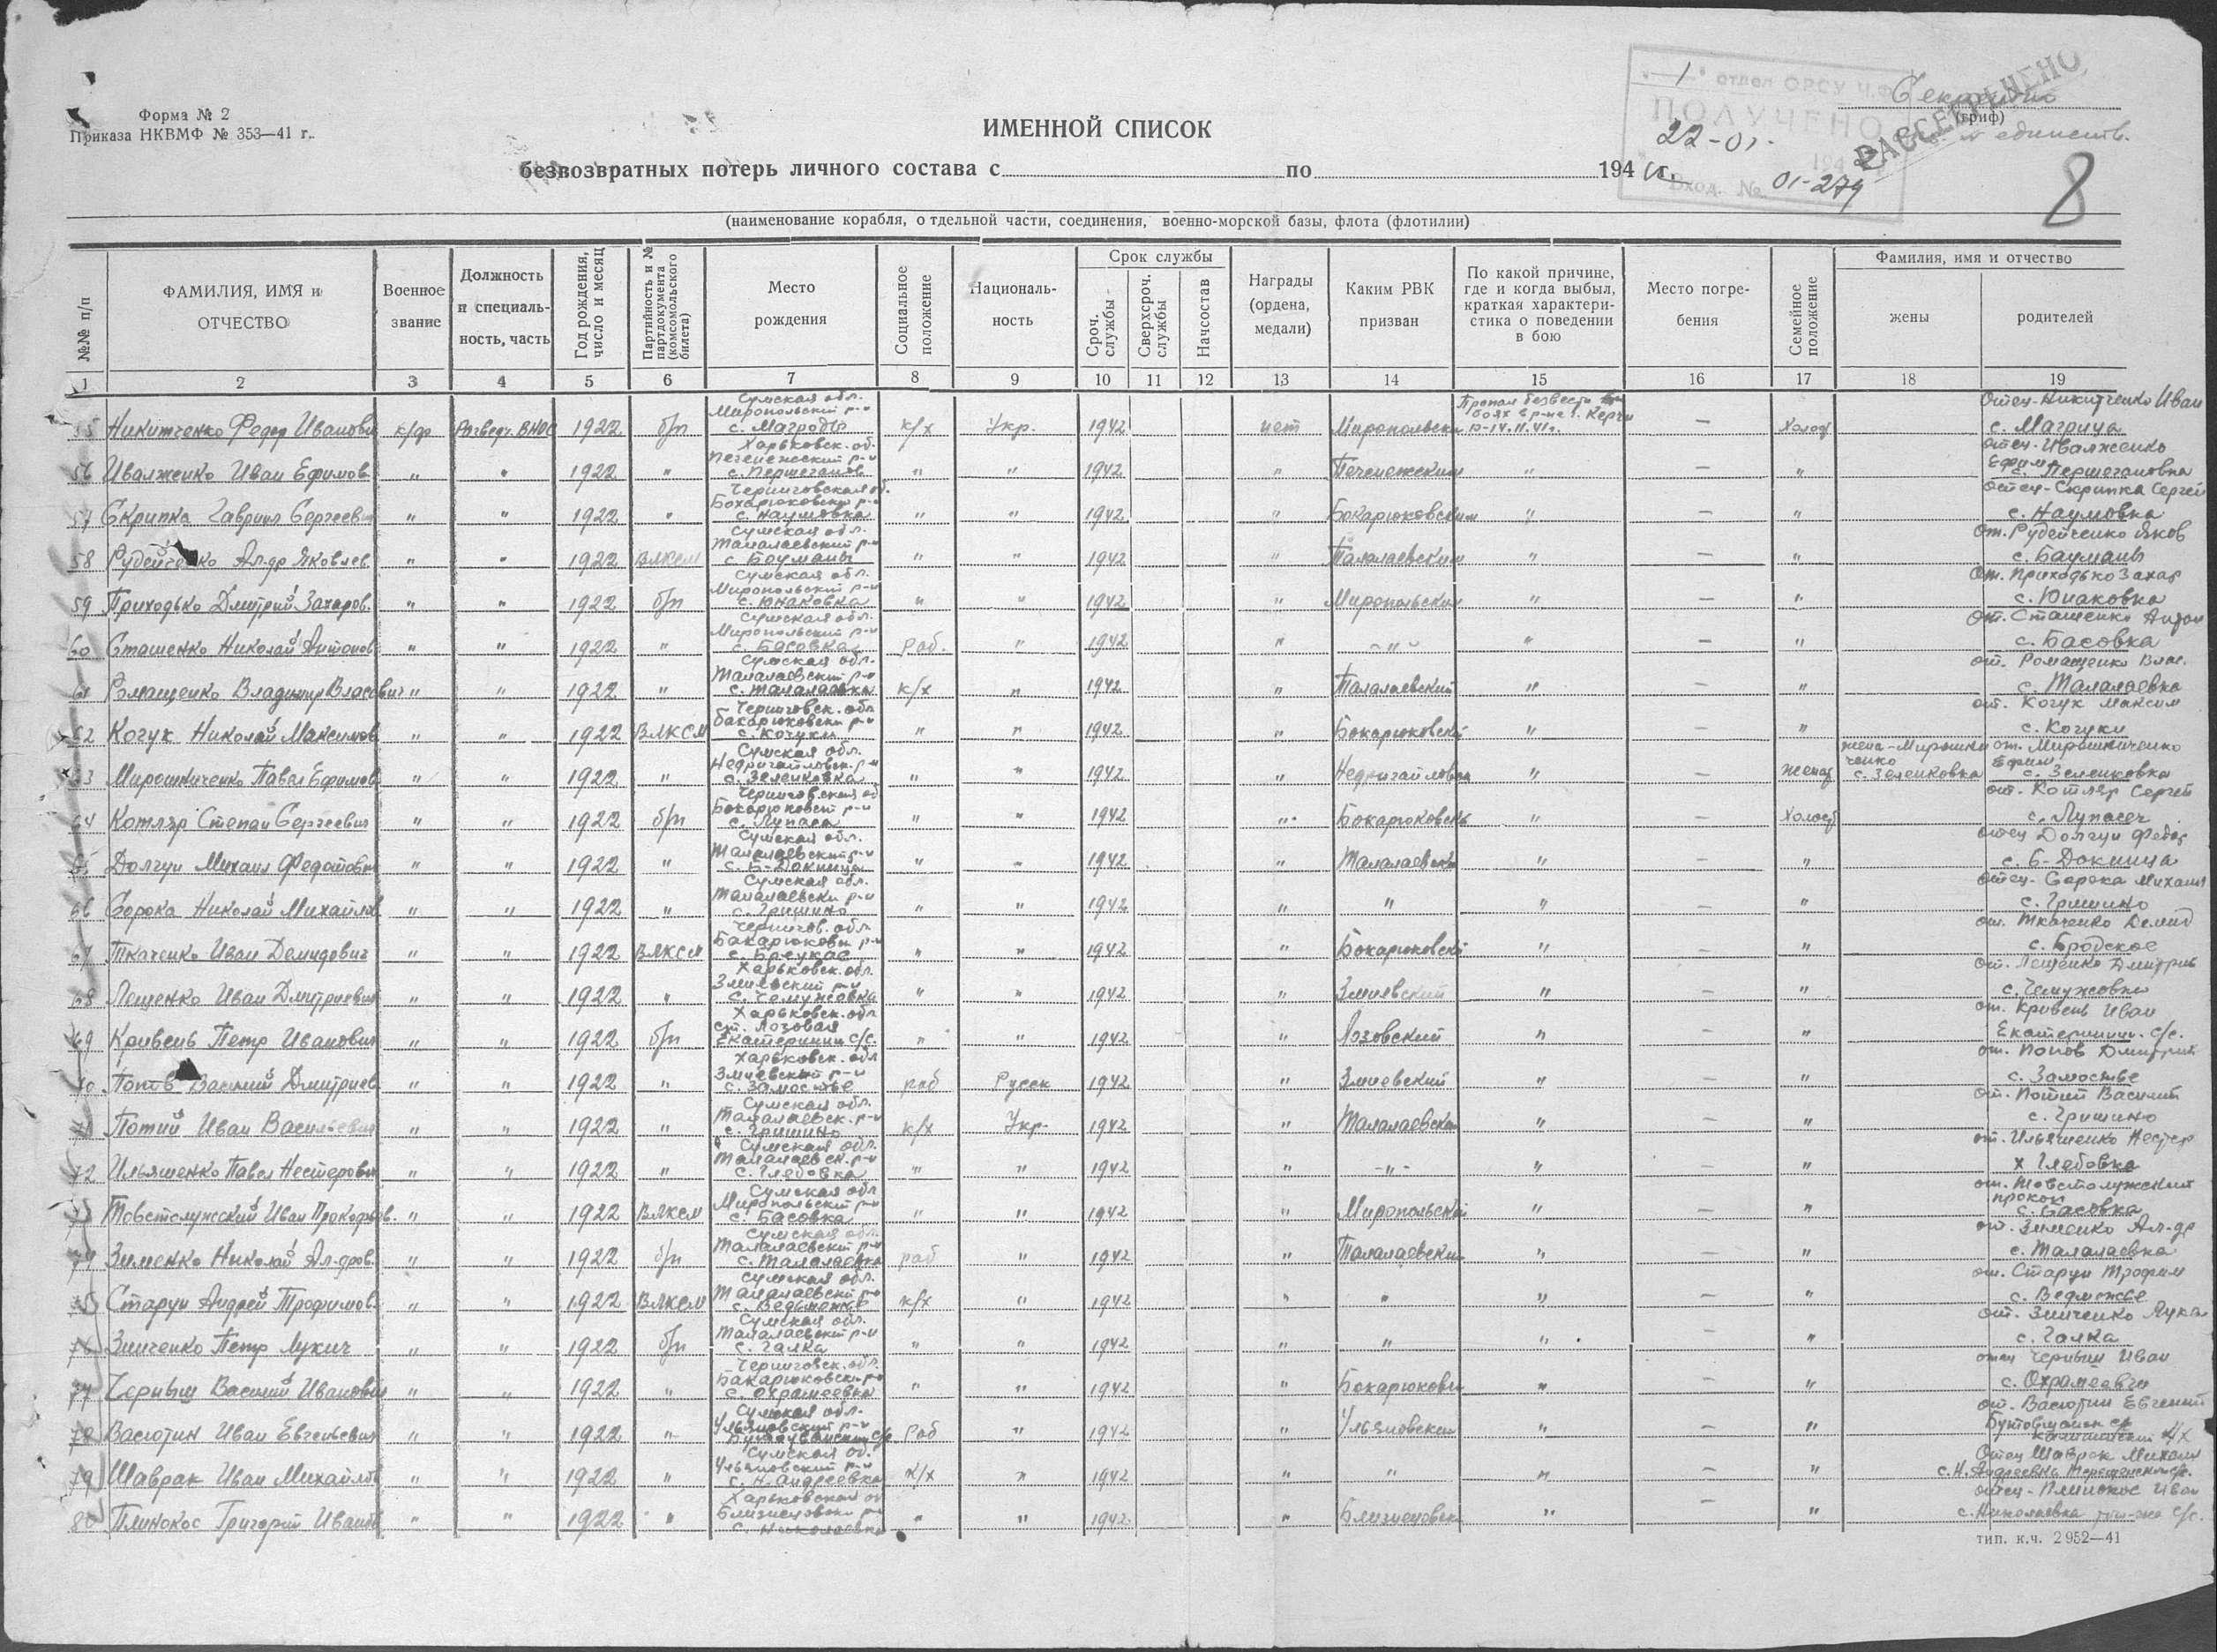 Форма № 2
Приказа НКВМФ № 353—41 г.
"1" отдел ОРСУ Ч.Ф.
ПОЛУЧЕНО
22-01-
194
Вход. № 01-279
Секретно
(гриф)
РАССЕКРЕЧЕНО
единств.
8
ИМЕННОЙ СПИСОК
безвозвратных потерь личного состава с по 194 г.
(наименование корабля, отдельной части, соединения, военно-морской базы, флота (флотилии)
№№ п/п
ФАМИЛИЯ, ИМЯ и ОТЧЕСТВО
Военное звание
Должность и специальность, часть
Год рождения, число и месяц
Партийность и № партдокумента (комсомольского билета)
Место рождения
Социальное положение
Националь-ность
Срок службы
Сроч. службы
Сверхсроч. службы
Начсостав
Награды (ордена, медали)
Каким РВК призван
По какой причине, где и когда выбыл, краткая характери-стика о поведении в бою
Место погре-бения
Семейное положение
Фамилия, имя и отчество
жены
родителей
1 2 3 4 5 6 7 8 9 10 11 12 13 14 15 16 17 18 19
55 Никитченко Федор Иванови к/ф Разведч. ВНОС 1922 б/п Сумская обл. Миропольский р-н с. Магроды к/х Укр. 1942 нет Миропольски Пропал безвести боях в р-не г. Керчи 10-14.11.41г. — Холост Отец-Никитченко Иван с. Магрица
56 Ивалженко Иван Ефимов " " 1922 " Харьковск. об. Печенежский р-н " " 1942 " Печенежским " — " отец-Ивалженко Ефим
57 Скрипка Гавриил Сергееви " " 1922 " Черниговская об. с. Наумовка " " 1942 " Бокарюковским " — " отец-Скрипка Сергей с. Наумовка
58 Рудейченко Ал-др Яковлев " " 1922 ВЛКСМ Сумская обл. Талалаевский р-н с. Бауманы " " 1942 " Талалаевским " — " от. Рудейченко Яков с. Бауманы
59 Приходько Дмитрий Захаров. " " 1922 б/п Сумская обл. Миропольский р-н с. Юнаковка " " 1942 " Миропольским " — " от. Приходько Захар с. Юнаковка
60 Сташенко Николай Антонов " " 1922 " Сумская обл. Миропольский р-н с. Басовка раб. " 1942 " -"- " — " от. Сташенко Антон с. Басовка
61 Ромащенко Владимир Власович " " 1922 " Сумская обл. Талалаевский р-н с. Талалаевка к/х " 1942 " Талалаевский " — " от. Ромащенко Влас. с. Талалаевка
62 Когук Николай Максимов " " 1922 ВЛКСМ Черниговск. обл. Бакарюковски р-н " " 1942 " Бокарюковски " — " от. Когук Максим с. Когуки
63 Мирошниченко Павел Ефимов " " 1922 " Сумская обл. Недригайловск. р-н с. Зеленковка " " 1942 " Недригайловски " — женат жена-Мирошниченко с. Зеленковка от. Мирошниченко Ефим с. Зеленковка
64 Котляр Степан Сергеевич " " 1922 б/п Черниговская об Бокарюковски р-н " " 1942 " Бокарюковски " — Холост от. Котляр Сергей
65 Долгун Михаил Федотови " " 1922 " Сумская обл. Талалаевский р-н " " 1942 " Талалаевски " — " отец Долгун Федот
66 Сорока Николай Михайлов " " 1922 " Сумская обл. Талалаевски р-н с. Гришино " " 1942 " " " — " отец-Сорока Михаил с. Гришино
67 Ткаченко Иван Демидович " " 1922 ВЛКСМ Чернигов. обл. Бакарюковски р-н " " 1942 " Бокарюковски " — " от. Ткаченко Демид с. Бродское
68 Лещенко Иван Дмитриевич " " 1922 " Харьковск. обл. Змиевский р-н с. Чемужовка " " 1942 " Змиевский " — " от. Лещенко Дмитрий с. Чемужовка
69 Кривень Петр Иванович " " 1922 б/п Харьковск. обл ст. Лозовая Екатеринин с/с. " " 1942 " Лозовский " — " от. Кривень Иван Екатеринин. с/с.
70 Попов Василий Дмитриев " " 1922 " Харьковск. обл Змиевский р-н с. Замостье раб Русск 1942 " Змиевский " — " от. Попов Дмитрий с. Замостье
71 Потий Иван Васильевич " " 1922 " Сумская обл. Талалаевск. р-н с. Гришино к/х Укр. 1942 " Талалаевски " — " от. Потий Василий с. Гришино
72 Ильяшенко Павел Нестерович " " 1922 " Сумская обл. Талалаевск. р-н с. Глебовка " " 1942 " -"- " — " от. Ильяшенко Нестер х Глебовка
73 Товстолужский Иван Прокофьев. " " 1922 ВЛКСМ Сумская обл Миропольский р-н с. Басовка " " 1942 " Миропольский " — " от. Товстолужский Прокоп с. Басовка
74 Зименко Николай Ал-дров. " " 1922 б/п Сумская обл. Талалаевский р-н с. Талалаевка раб " 1942 " Талалаевским " — " от. Зименко Ал-др с. Талалаевка
75 Старун Андрей Трофимов. " " 1922 ВЛКСМ Сумская обл. Талалаевски р-н с. Ведмежье к/х " 1942 " " " — " от. Старун Трофим с. Ведмежье
76 Зинченко Петр Лукич " " 1922 б/п Сумская обл. Талалаевский р-н с. Галка " " 1942 " " " — " от. Зинченко Лука с. Галка
77 Черныш Василий Иванович " " 1922 " Черниговск. обл. Бакарюковски р-н с. Охрамеевка " " 1942 " Бокарюковски " — " отец Черныш Иван
78 Васютин Иван Евгеньевич " " 1922 " Сумская обл. Ульяновский р-н раб " 1942 " Ульяновским " — " от. Васютин Евгений
79 Шаврак Иван Михайлов " " 1922 " Сумская об. Ульяновский р-н с. Н. Андреевка к/х " 1942 " " " — " Отец Шаврак Михаил с. Н. Андреевка
80 Плинокос Григорий Иванов " " 1922 " Харьковская об Близнецовски р-н с. Николаевка " " 1942 " Близнецовски " — " отец-Плинокос Иван с. Николаевка с/с.
тип. к.ч. 2952—41